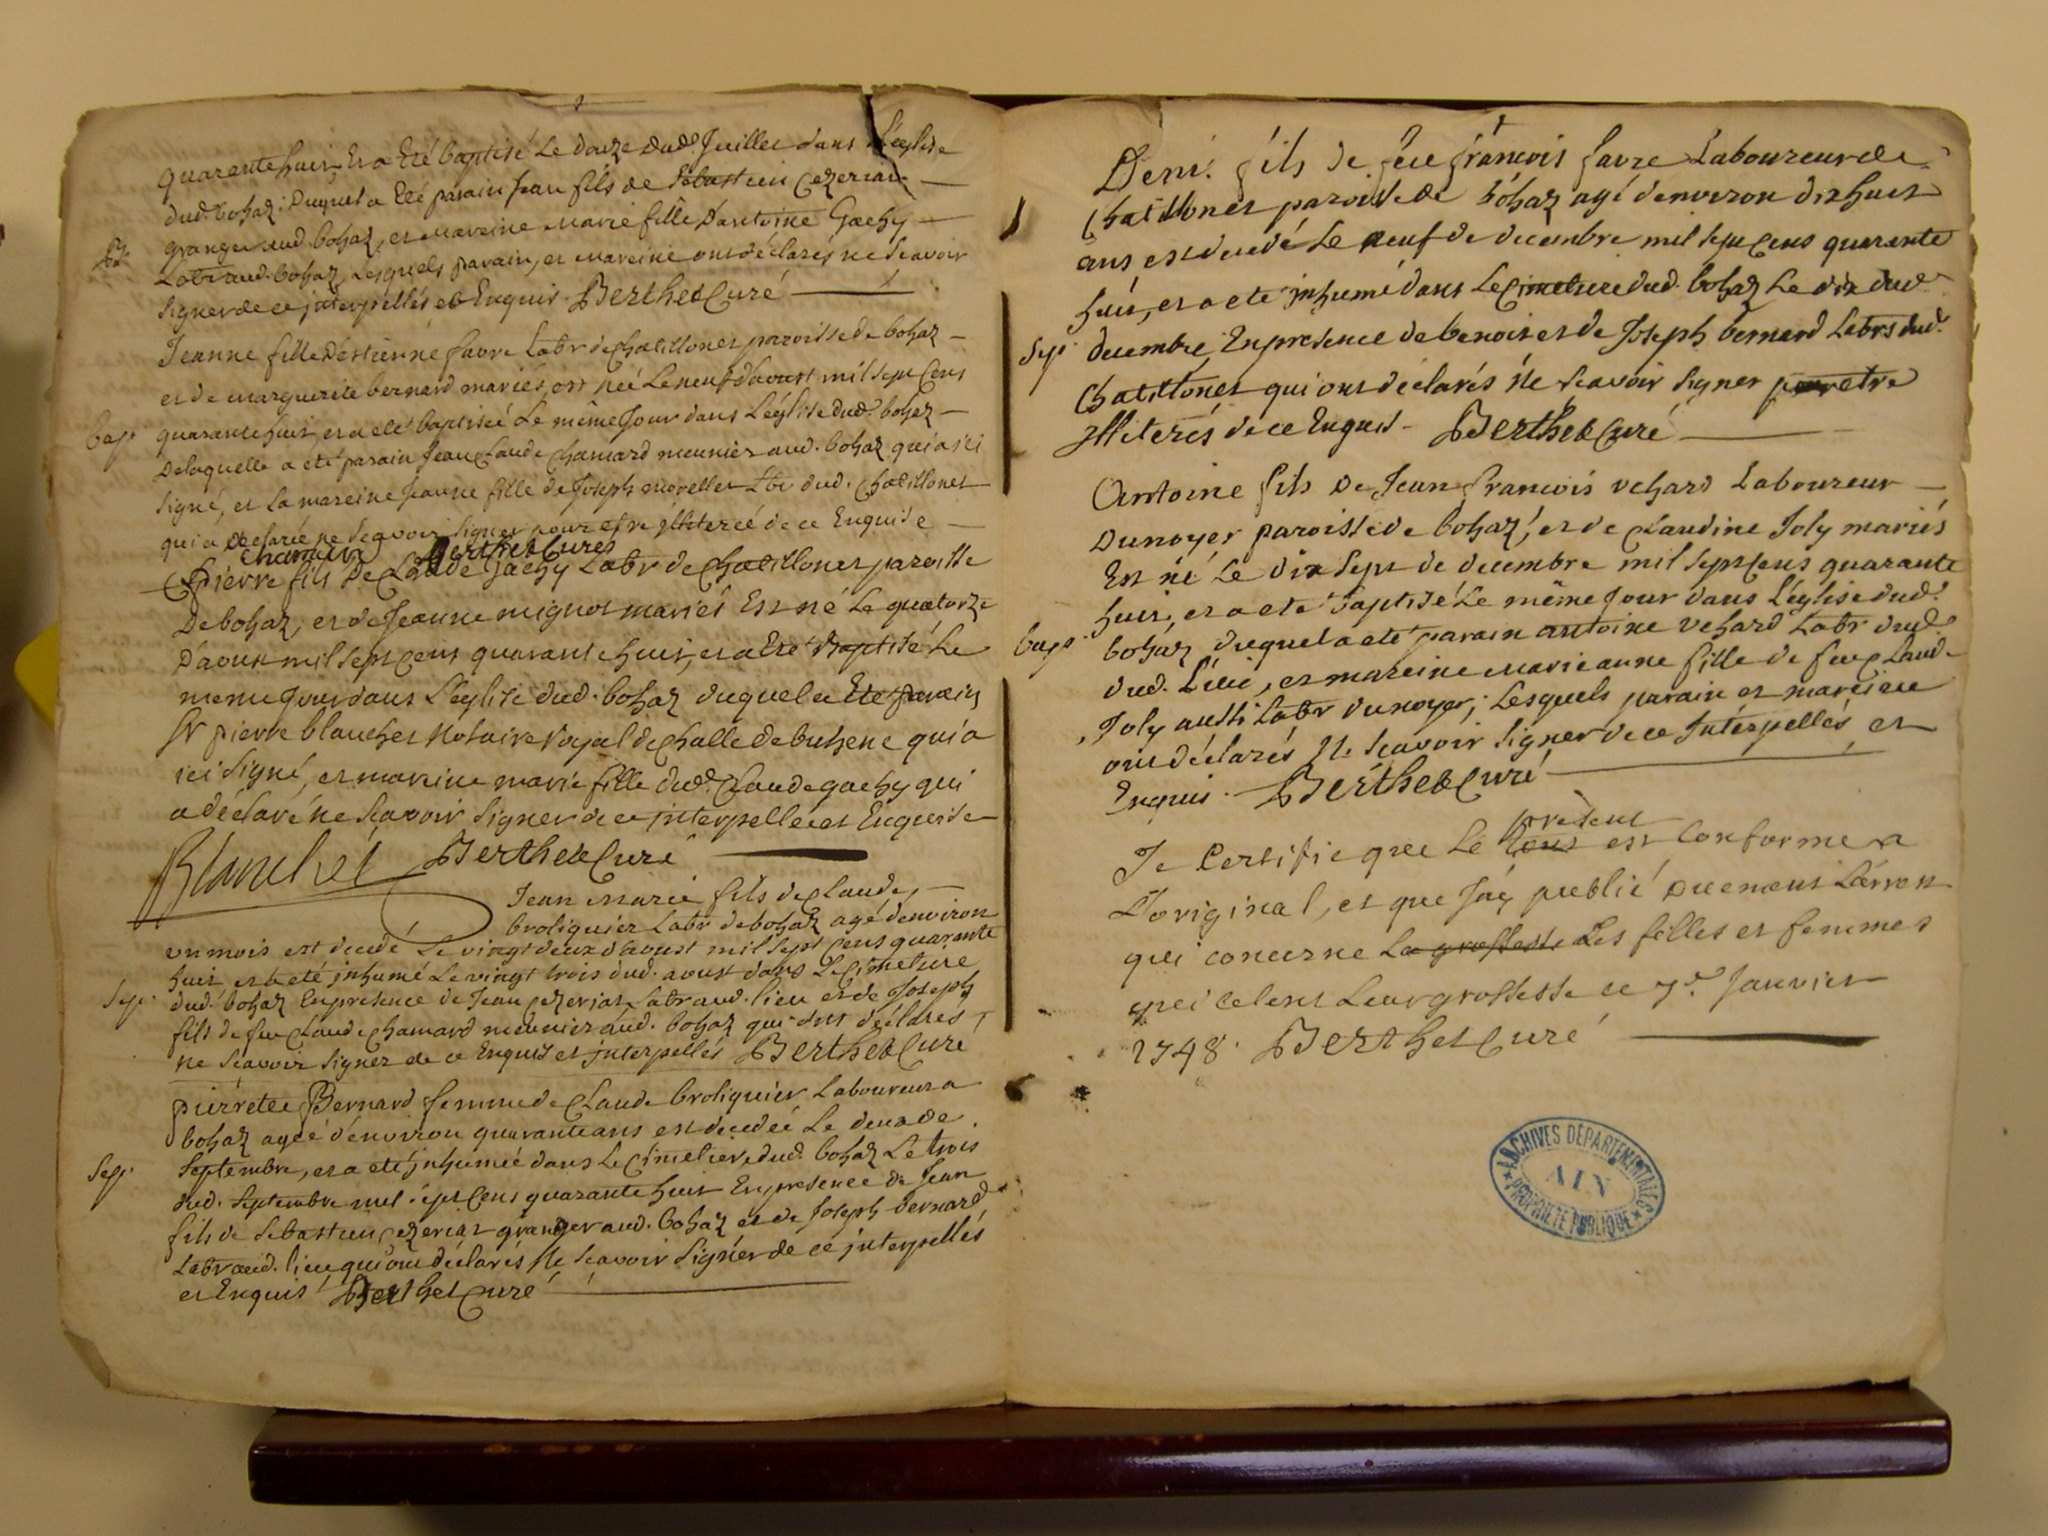 quarante huit Et a Eté baptisé Le douze dud. Juillet dans L'église
dud. bohaz; Duquel a Eté parain Jean fils de Sébastien cezeriat
granger aud. bohaz, et mareine Marie fille D'antoine Gachy
Labr aud. bohaz, Lesquels parain, et mareine ont déclarés ne scavoir
signer de ce jnterpellés et Enquis. Berthet Curé
Jeanne fille D'estienne favre Labr de chatillonet paroisse de bohaz
et de marguerite bernard mariés, est née Le neuf d'aoust mil sept Cens
bap.
quarante huit, et a eté baptiseé Le même Jour dans L'église dud. bohaz
Delaquelle a eté parain Jean Claude Chamard meunier aud. bohaz qui a ici
signé, et La mareine Jeanne fille de Joseph morellet Lbr dud. chatillonet
qui a Déclaré ne scavoir signer pour etre jlliterée de ce Enquise
Chamard Berthet Curé
Pierre fils De Claude gachy Labr de chatillonet paroisse
De bohaz, et de Jeanne mignot mariés Est né Le quatorze
D'aoust mil sept cens quarante huit, et a Eté Baptisé Le
meme Jour dans L'eglise dud. bohaz duquel a Eté parain
Sr pierre blanchet Notaire Royal de challe de buhene qui a
ici signé, et mareine marie fille dud. Claude gachy qui
a déclaré ne scavoir signer de ce jnterpellée et Enquise
Blanchet Berthet Curé
Jean Marie fils de Claude
broliquier Labr de bohaz agé d'environ
un mois est decedé Le vingt deux d'aoust mil sept Cens quarante
huit, et a eté jnhumé Le vingt trois dud. aoust dans Le Cimetiere
Sep.
dud. bohaz En presence de Jean cezeriat Labr aud. lieu et de Joseph
fils de feu Claude chamard meunier aud. bohaz qui ont déclarés
ne scavoir signer de ce Enquis et jnterpellés Berthet Curé
pierrette Bernard femme de Claude broliquier Laboureur a
bohaz ageé d'environ quarante ans est decedeé Le deux de
Sep.
septembre, et a eté jnhumeé dans Le Cimetiere dud. bohaz Le trois
dud. septembre mil sept Cens quarante huit En presence de Jean
fils de Sebastien cezeriat granger aud. bohaz et de Joseph bernard
Labr aud. lieu qui ont déclarés Ne scavoir signer de ce jnterpellés
et Enquis Berthet Curé
Deni. fils de feu francois favre Laboureur de
chatillonet paroisse de bohaz agé d'environ dix huit
ans est decedé Le neuf de decembre mil sept Cens quarante
huit, et a eté jnhumé dans Le Cimetiere dud. bohaz Le dix dud.
Sep.
decembre En presence de benoit et de Joseph bernard Labrs dud.
Chatillonet qui ont déclarés Ne scavoir signer pour etre
jlliterés de ce Enquis Berthet Curé
Antoine fils De Jean francois vehard Laboureur
Du noyer paroisse de bohaz, et de Claudine Joly mariés
Est né Le dix sept de decembre mil sept Cens quarante
huit, et a eté baptisé Le même Jour dans L'église dud.
bap.
bohaz duquel a eté parain antoine vehard Labr dud.
dud. Lieu, et mareine Marie anne fille de feu Claude
Joly aussi Labr du noyer; Lesquels parain et mareine
ont déclarés Ne scavoir signer de ce Jnterpellés, et
Enquis. Berthet Curé
present
Je Certifie que Le est Conforme a
L'original, et que J'ay publié Duement L'arrest
qui concerne La grossesse Les filles et femmes
qui celent Leur grossesse ce 7e. Janvier
1748. Berthet Curé
ARCHIVES DÉPARTEMENTALES
AIN
PROPRIÉTÉ PUBLIQUE